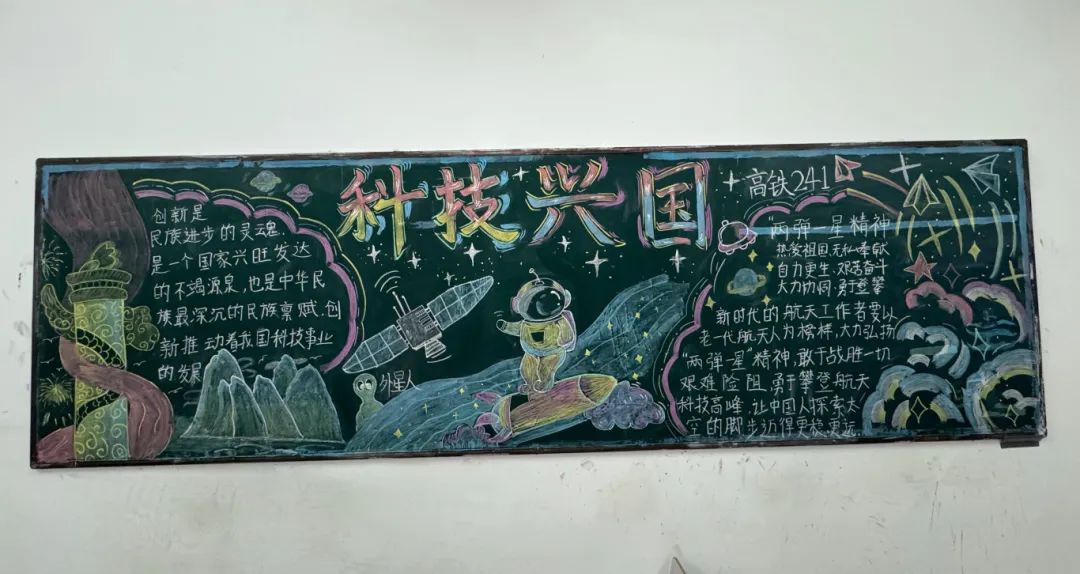 科技兴国
创新是
民族进步的灵魂
是一个国家兴旺发达
的不竭源泉,也是中华民
族最深沉的民族禀赋,创
新推动着我国科技事业
的发展
外星人
高铁241
"两弹一星"精神
热爱祖国、无私奉献
自力更生、艰苦奋斗
大力协同、勇于登攀
新时代的航天工作者要以
老一代航天人为榜样,大力弘扬
"两弹一星"精神,敢于战胜一切
艰难险阻,勇于攀登航天
科技高峰,让中国人探索太
空的脚步迈得更稳更远